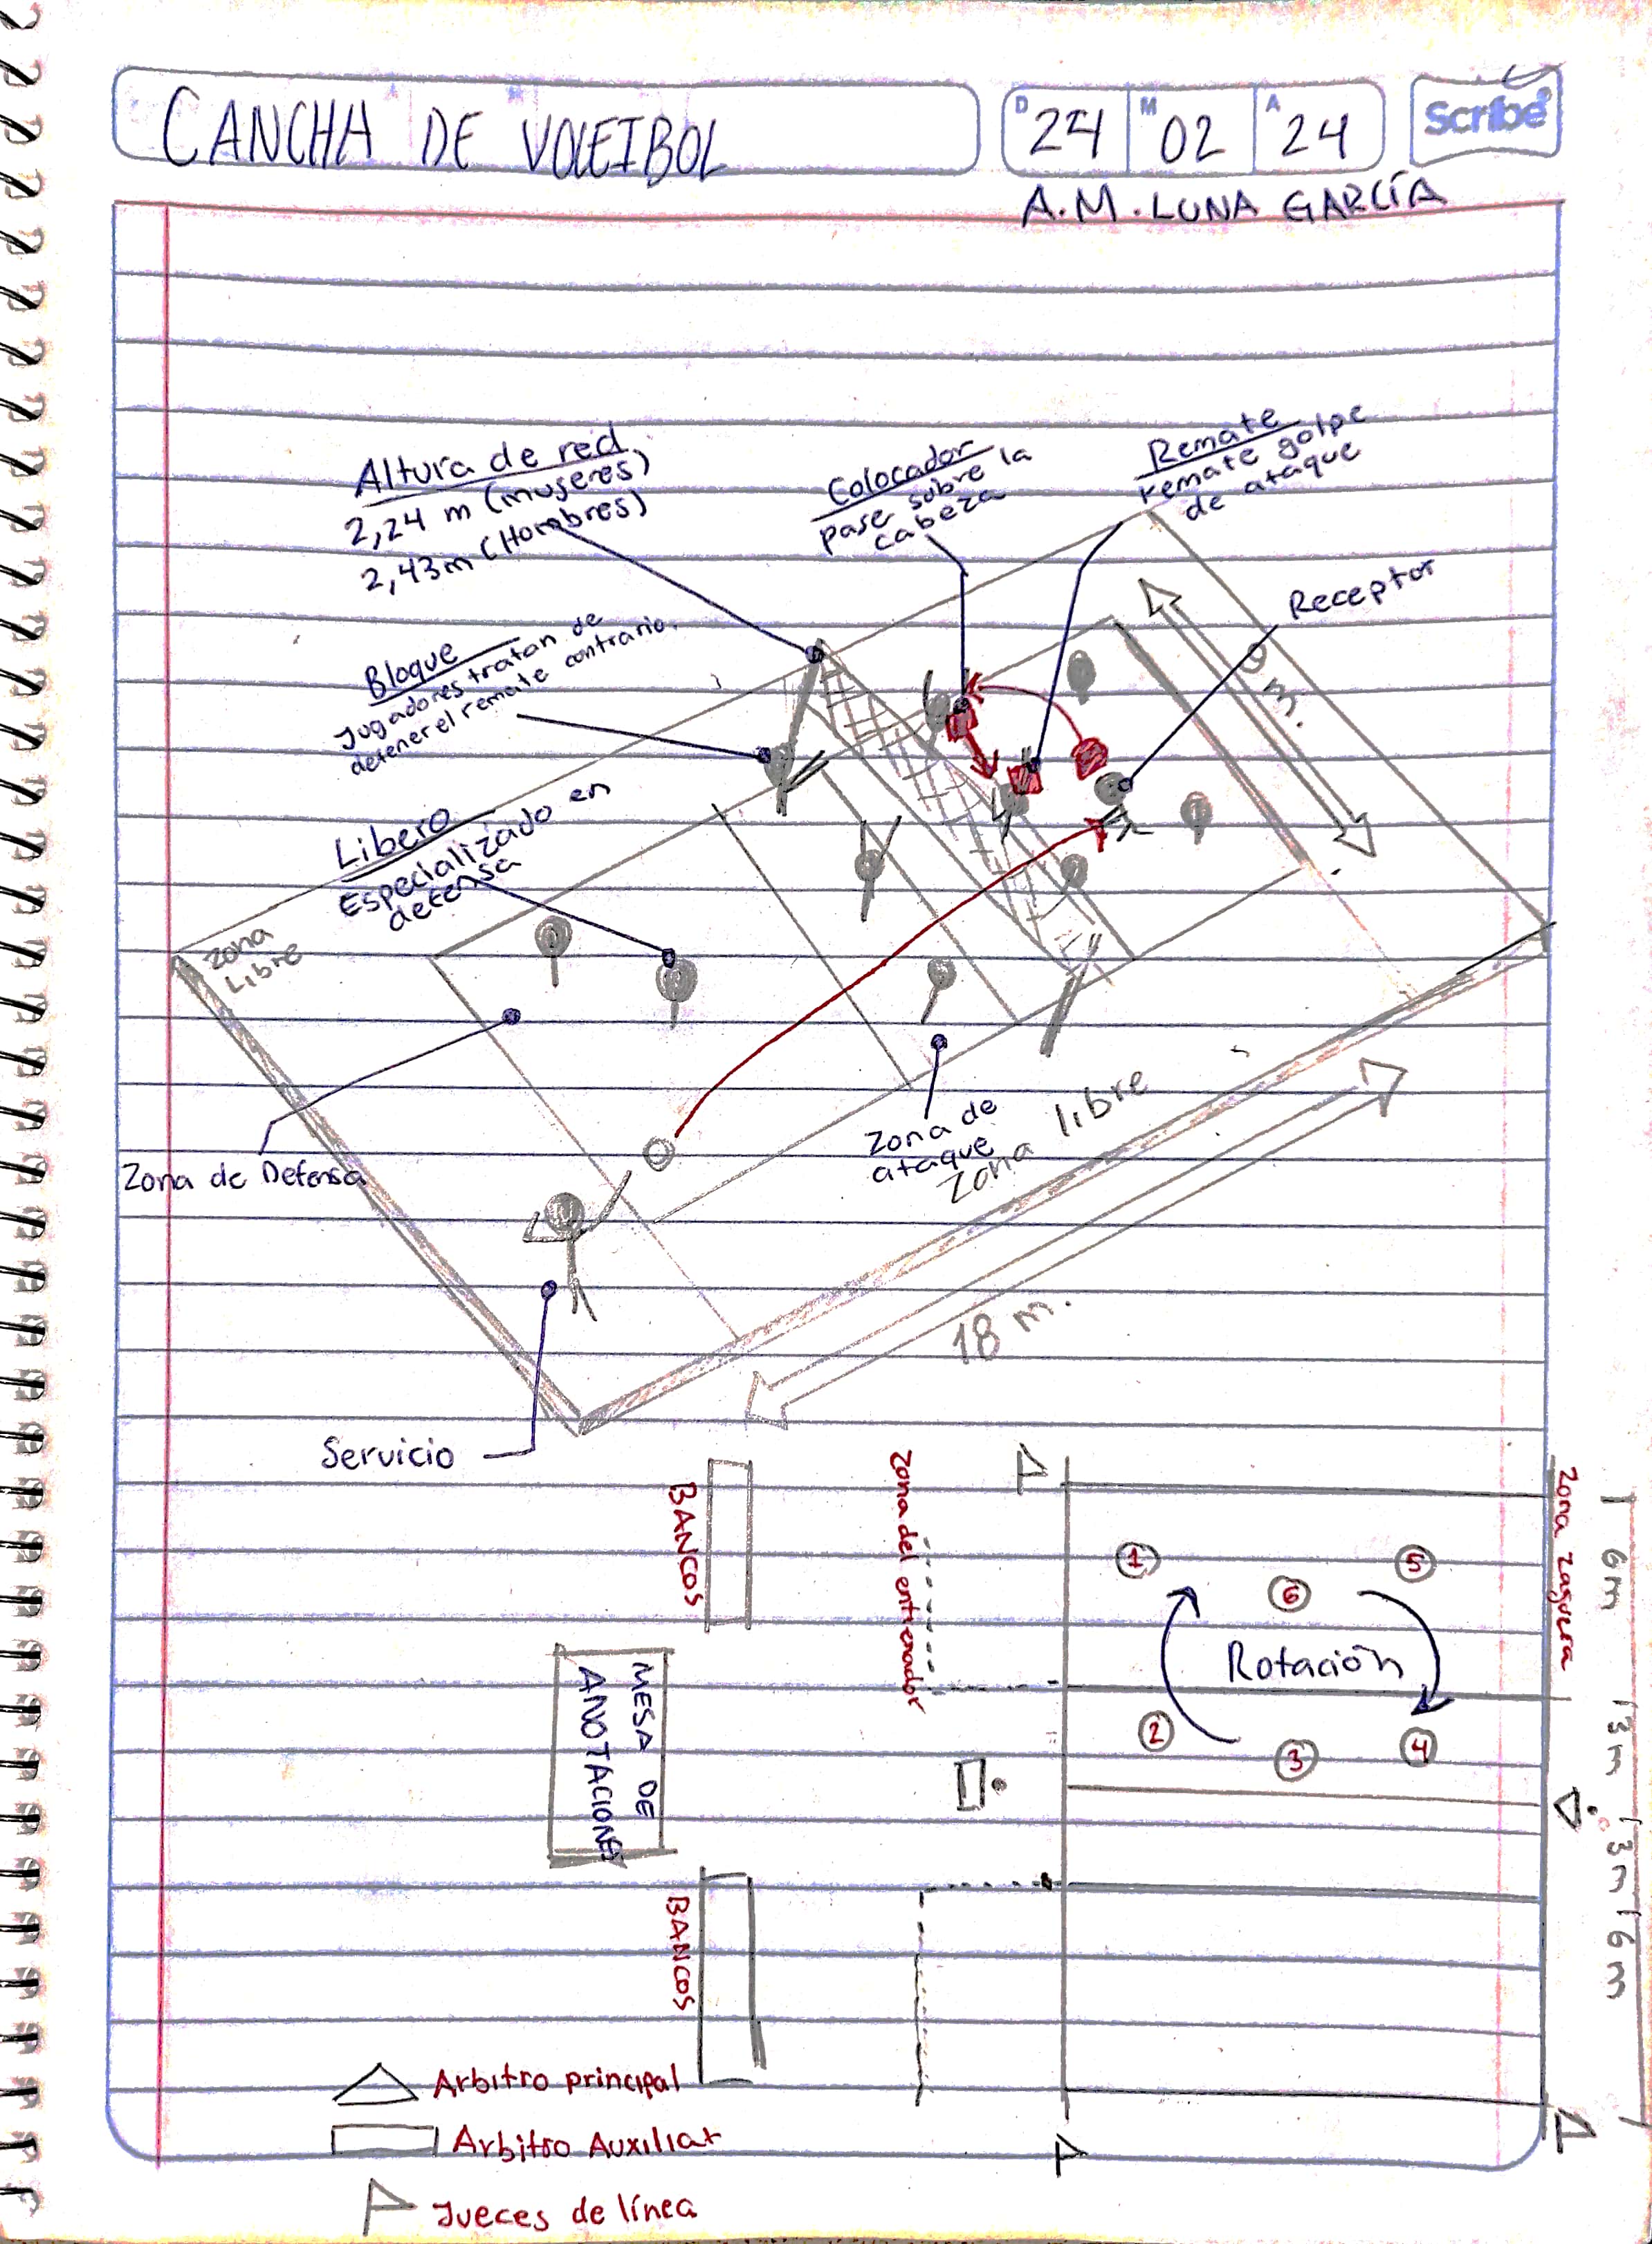 CANCHA DE VOLEIBOL
D 24 M 02 A 24
Scribe
A.M. LUNA GARCÍA
Altura de red
2,24 m (mujeres)
2,43m (Hombres)
Colocador
pase sobre la
cabeza
Remate
remate golpe
de ataque
Receptor
9 m.
Bloque
Jugadores tratan de
detener el remate contrario.
Libero
Especializado en
defensa
Zona
Libre
Zona de Defensa
Zona de
ataque
Zona libre
18 m.
Servicio
BANCOS
Zona del entrenador
Zona zaguera
6m
3m
3m
6m
1
6
5
Rotación
2
3
4
MESA DE
ANOTACIONES
BANCOS
Arbitro principal
Arbitro Auxiliar
Jueces de línea